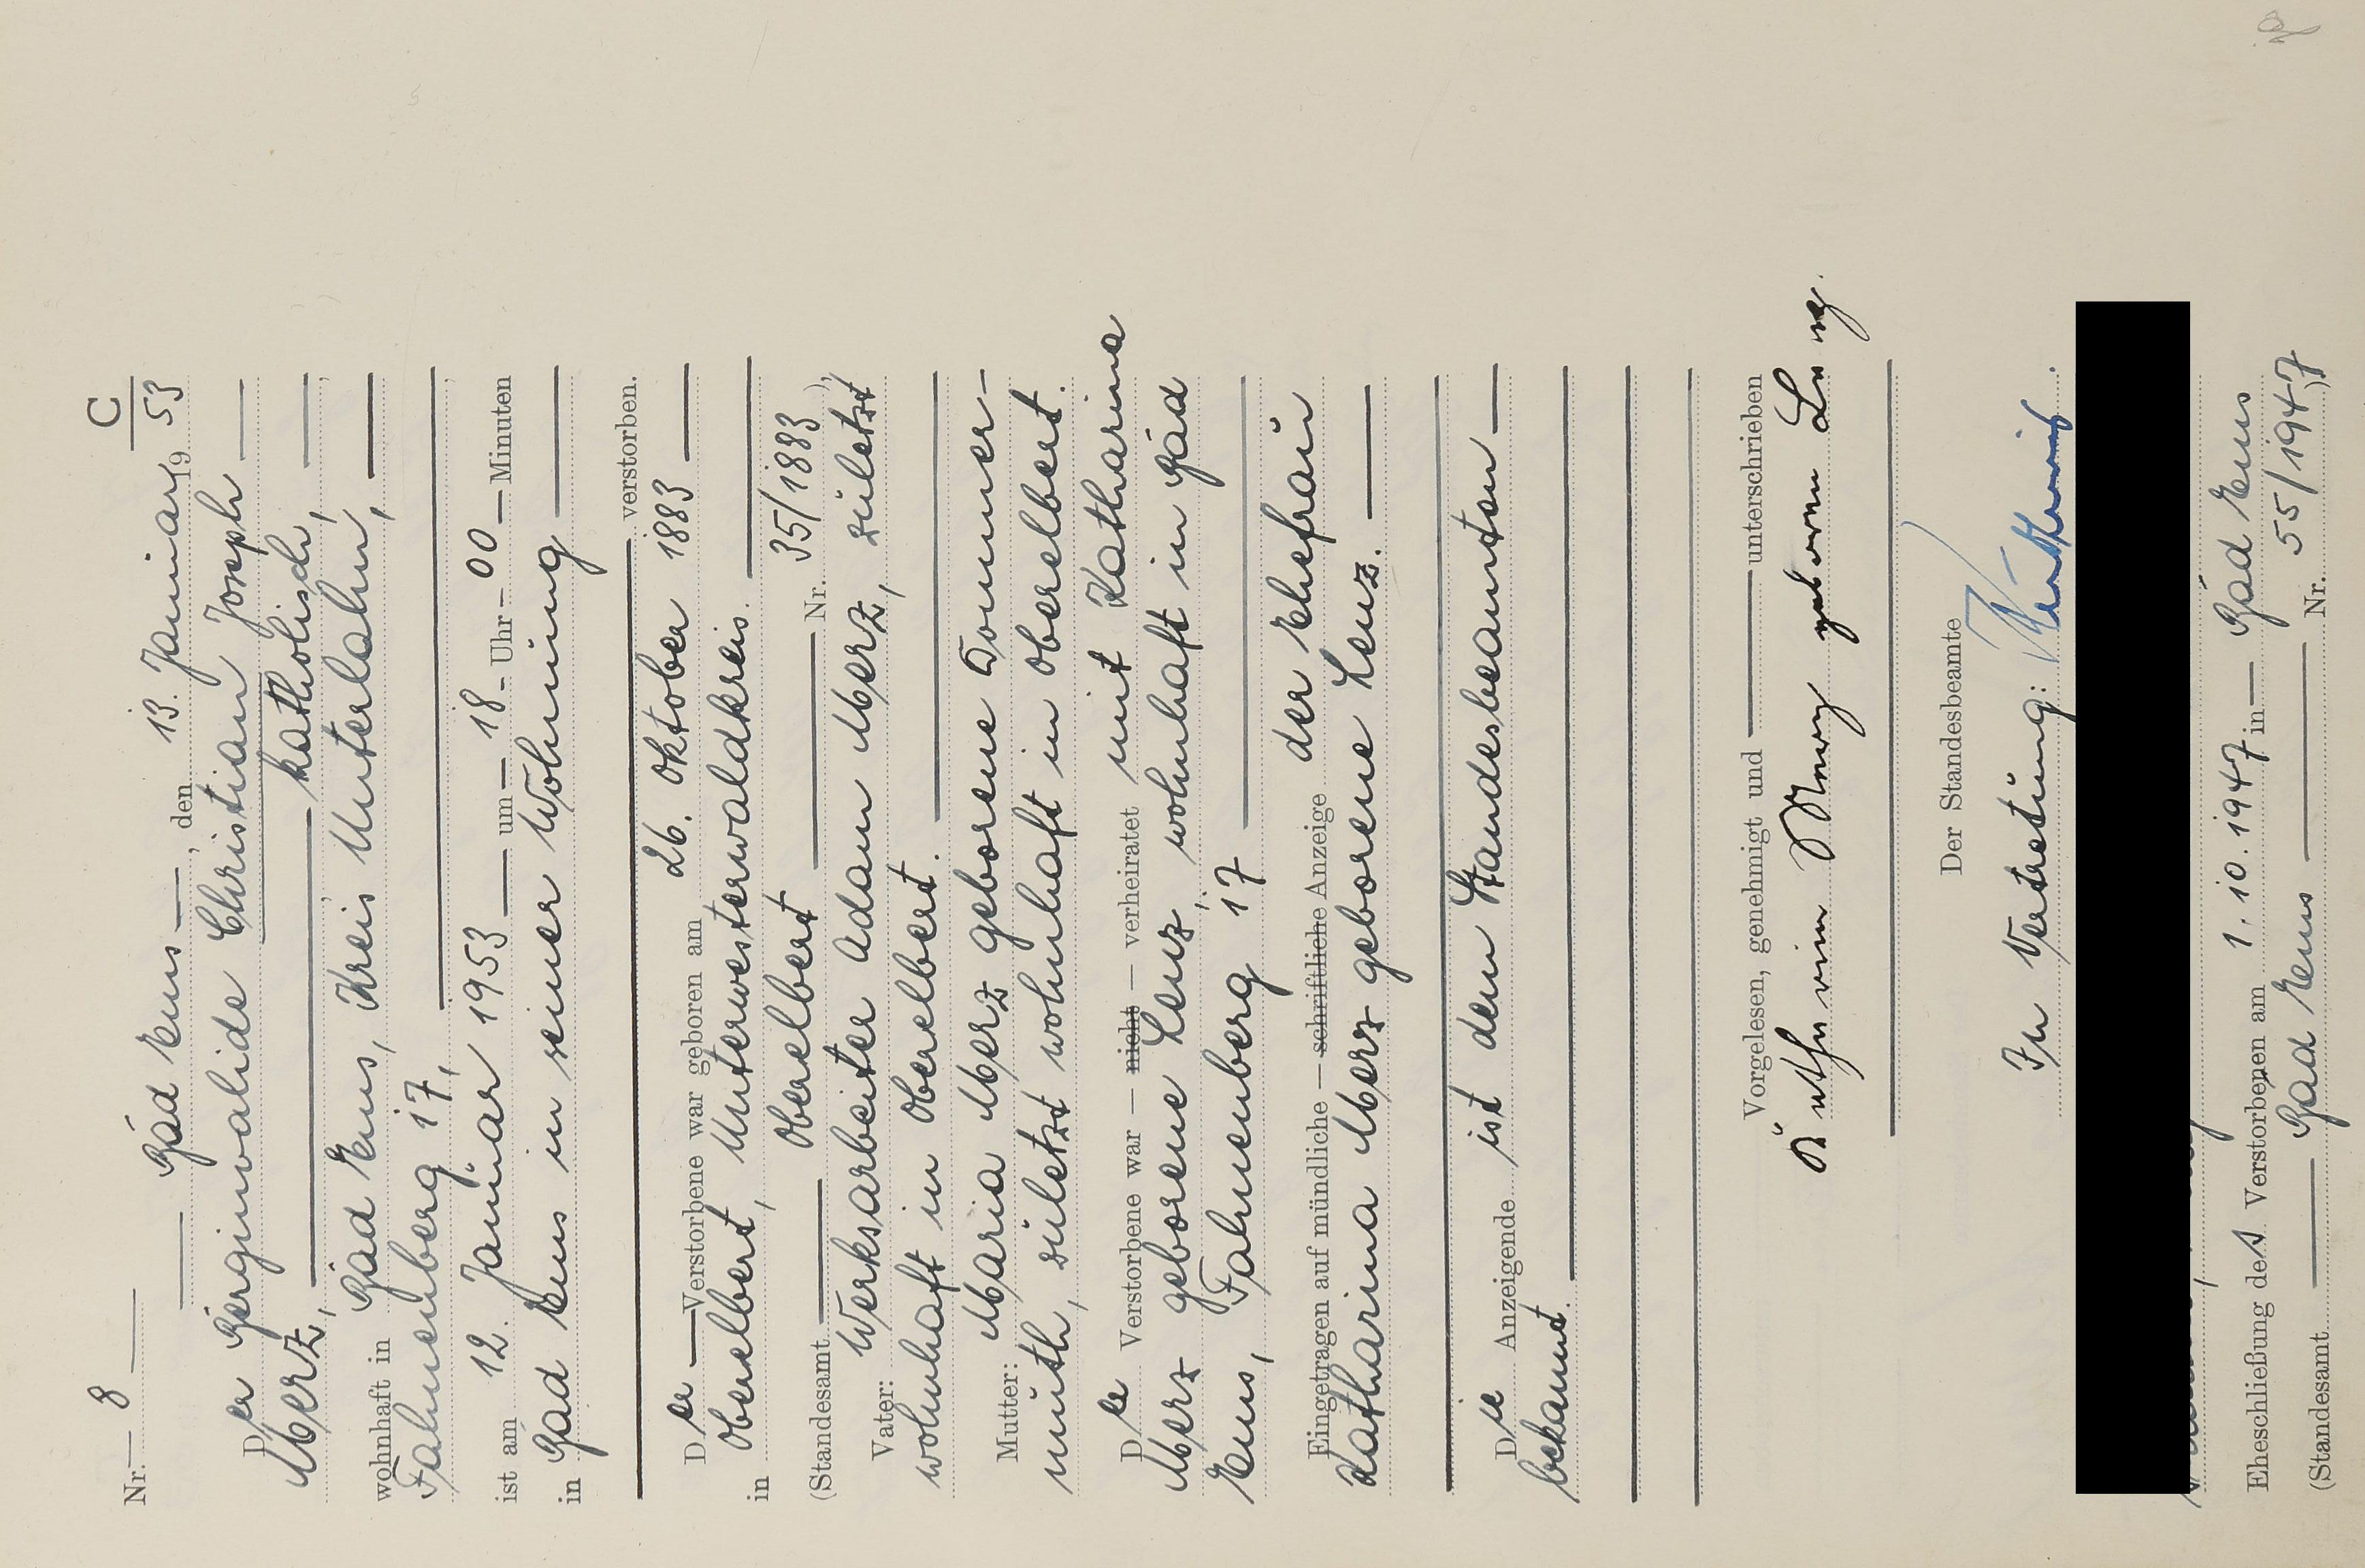 C
Nr. 8
Bad Ems, den 13. Januar 1953
Der Berginvalide Christian Joseph
Merz, katholisch,
wohnhaft in Bad Ems, Kreis Unterlahn,
Fahnenberg 17,
ist am 12. Januar 1953 um 18 Uhr 00 Minuten
in Bad Ems in seiner Wohnung
verstorben.
Der Verstorbene war geboren am 26. Oktober 1883
in Oberelbert, Unterwesterwaldkreis.
(Standesamt Oberelbert Nr. 35/1883),
Vater: Werksarbeiter Adam Merz, zuletzt
wohnhaft in Oberelbert.
Mutter: Maria Merz geborene Dommer-
muth, zuletzt wohnhaft in Oberelbert.
Der Verstorbene war — nicht — verheiratet mit Katharina
Merz geborene Lenz, wohnhaft in Bad
Ems, Fahnenberg 17
Eingetragen auf mündliche — schriftliche Anzeige der Ehefrau
Katharina Merz geborene Lenz.
Die Anzeigende ist dem Standesbeamten
bekannt.
Vorgelesen, genehmigt und unterschrieben
geborene Lenz.
Der Standesbeamte
In Vertretung:
Eheschließung des Verstorbenen am 1.10.1947 in Bad Ems
(Standesamt Bad Ems Nr. 55/1947)